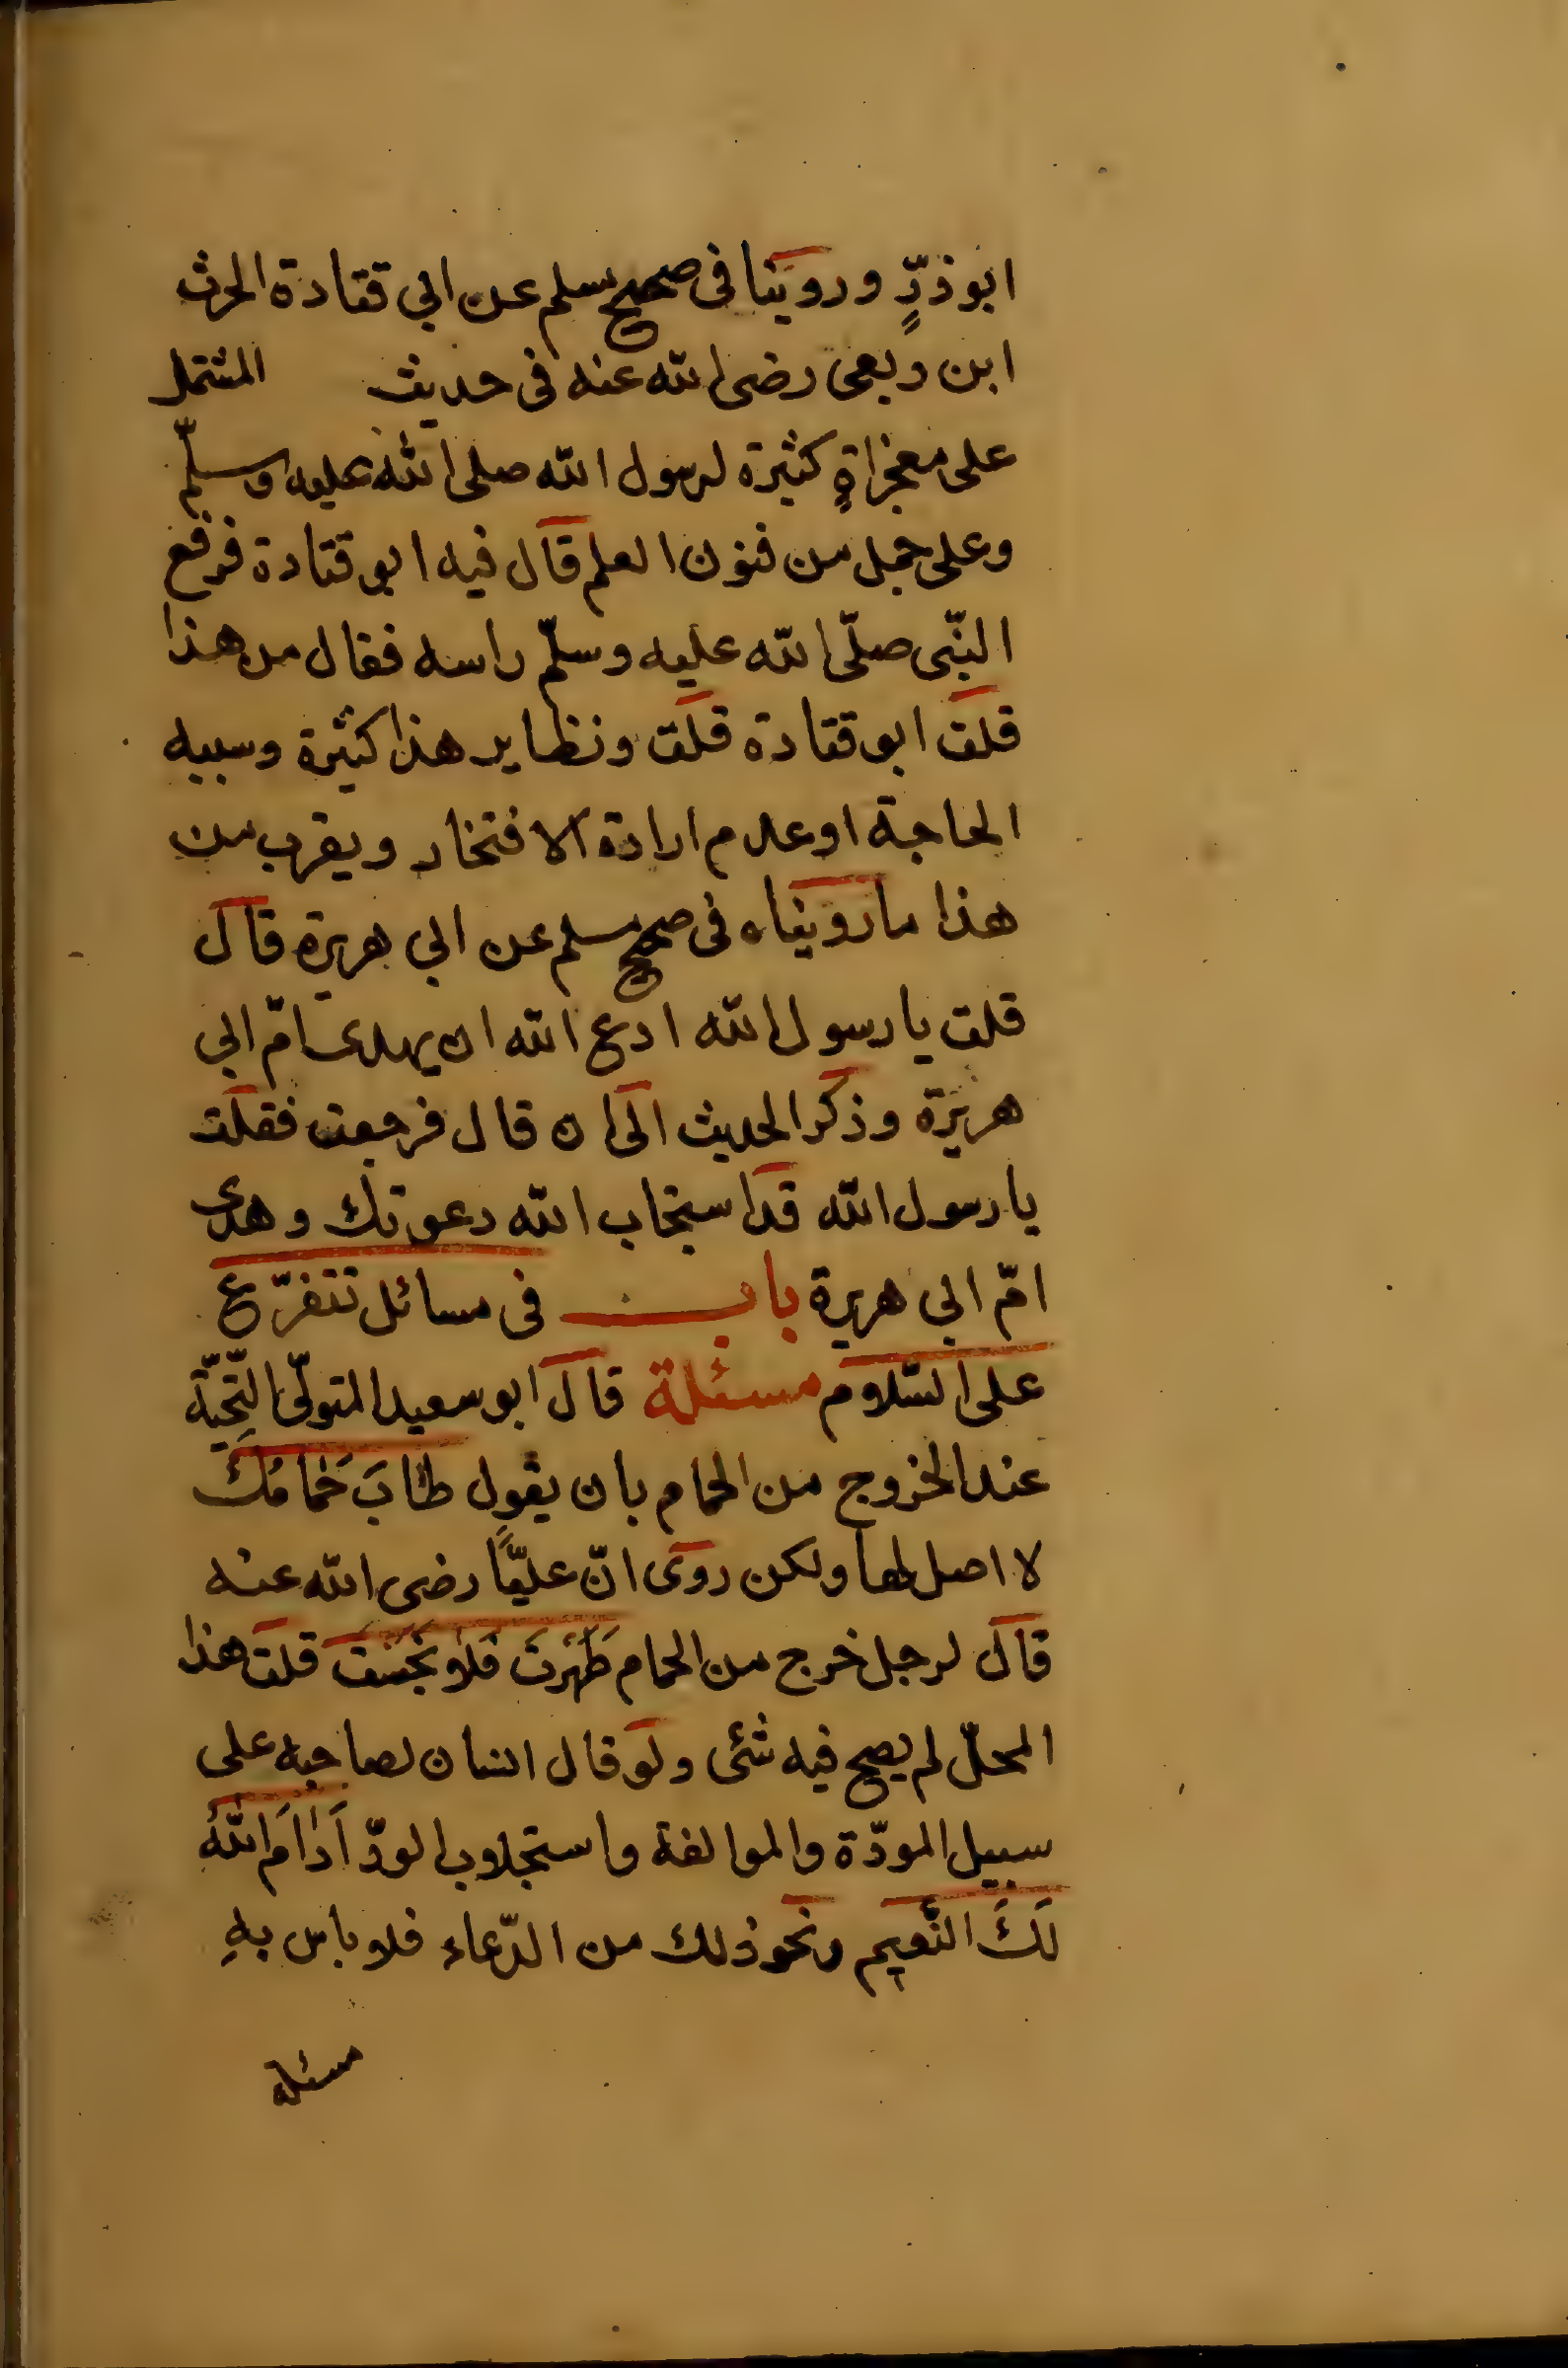 ابو ذرٍّ وروينا فى صحيح مسلم عن ابي قتادة الحرث
ابن ربعى رضى الله عنه فى حديث المشتمل
على معجزاةٍ كثيرة لرسول الله صلى الله عليه وسلّم
وعلى جمل من فنون العلم قال فيه ابو قتادة فرفع
النّبى صلّى الله عليه وسلّم راسه فقال من هذا
قلت ابو قتادة قلت ونظاير هذا كثيرة وسببه
الحاجة او عدم ارادة الافتخار ويقرب من
هذا ما رويناه فى صحيح مسلم عن ابي هريرة قال
قلت يا رسول الله ادع الله ان يهدى امّ ابي
هريرة وذكر الحديث الى ان قال فرجعت فقلت
يا رسول الله قد استجاب الله دعوتك وهدى
امّ ابي هريرة باب فى مسائل تتفرّع
على السّلام مسئلة قال ابو سعيد المتولّى التّحِيّة
عند الخروج من الحمام بان يقول طابَ حَمامُكَ
لا اصل لها ولكن روى انّ عليًّا رضى الله عنه
قال لرجل خرج من الحمام طَهُرتَ فَلا نَجَسْتَ قلت هذا
المحلّ لم يصح فيه شئى ولو قال انسان لصاحبه على
سبيل المودّة والموالفة واستجلاب الودّ اَدامَ اللّٰهُ
لَكَ النَّعيم ونحو ذلك من الدّعاء فلا باس بهِ
مسئلة